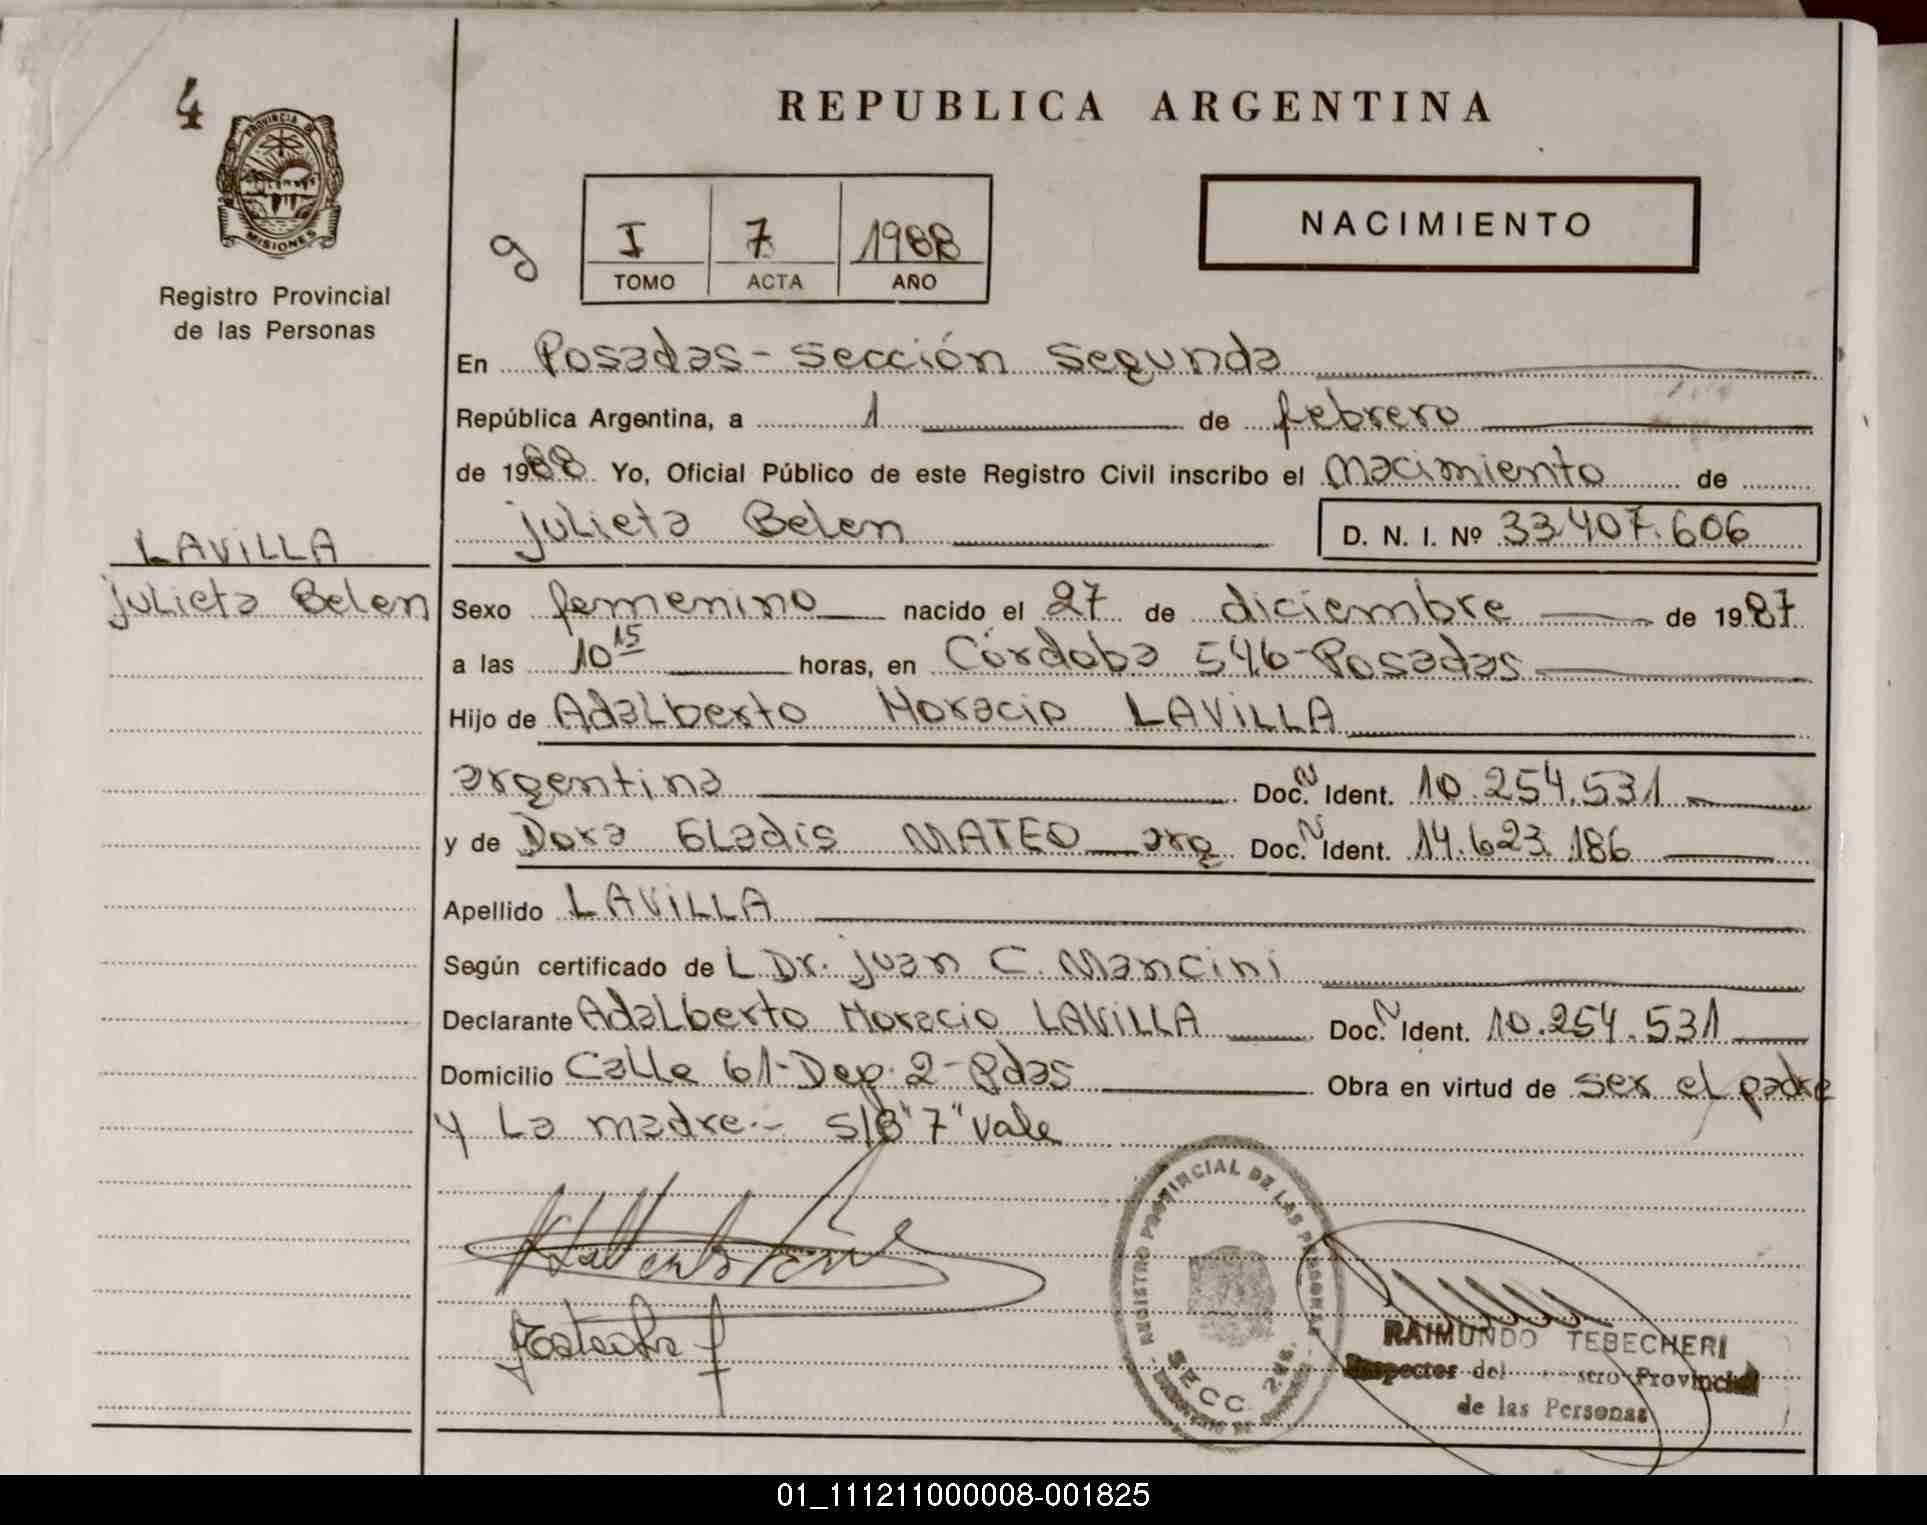 4
PROVINCIA DE
MISIONES
Registro Provincial
de las Personas
REPUBLICA ARGENTINA
g
I 7 1988
TOMO ACTA AÑO
NACIMIENTO
En Posadas - Sección Segunda
República Argentina, a 1 de febrero
de 1988 Yo, Oficial Público de este Registro Civil inscribo el Nacimiento de
julieta Belen D. N. I. Nº 33.407.606
LAVILLA
julieta Belen
Sexo femenino nacido el 27 de diciembre de 1987
a las 10 15 horas, en Córdoba 546 - Posadas
Hijo de Adalberto Horacio LAVILLA
argentina Doc. N Ident. 10.254.531
y de Dora Gladis MATEO arg Doc. N Ident. 14.623.186
Apellido LAVILLA
Según certificado de L Dr. juan C. Mancini
Declarante Adalberto Horacio LAVILLA Doc. N Ident. 10.254.531
Domicilio Calle 61 - Dep. 2 - Pdas Obra en virtud de ser el padre
y La madre.- S/B "7" Vale
REGISTRO PROVINCIAL DE LAS PERSONAS
SECC. 2da.
RAIMUNDO TEBECHERI
Inspector del Provincial
de las Personas
01_111211000008-001825